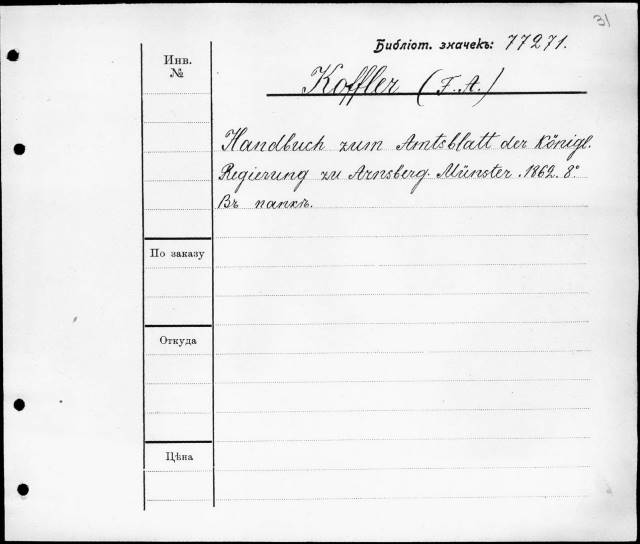 31
Библіот. значекъ: 77271.
Инв.
№
Koffler (F. A.)
Handbuch zum Amtsblatt der Königl.
Regierung zu Arnsberg. Münster. 1862. 8º
Въ папкѣ.
По заказу
Откуда
Цѣна